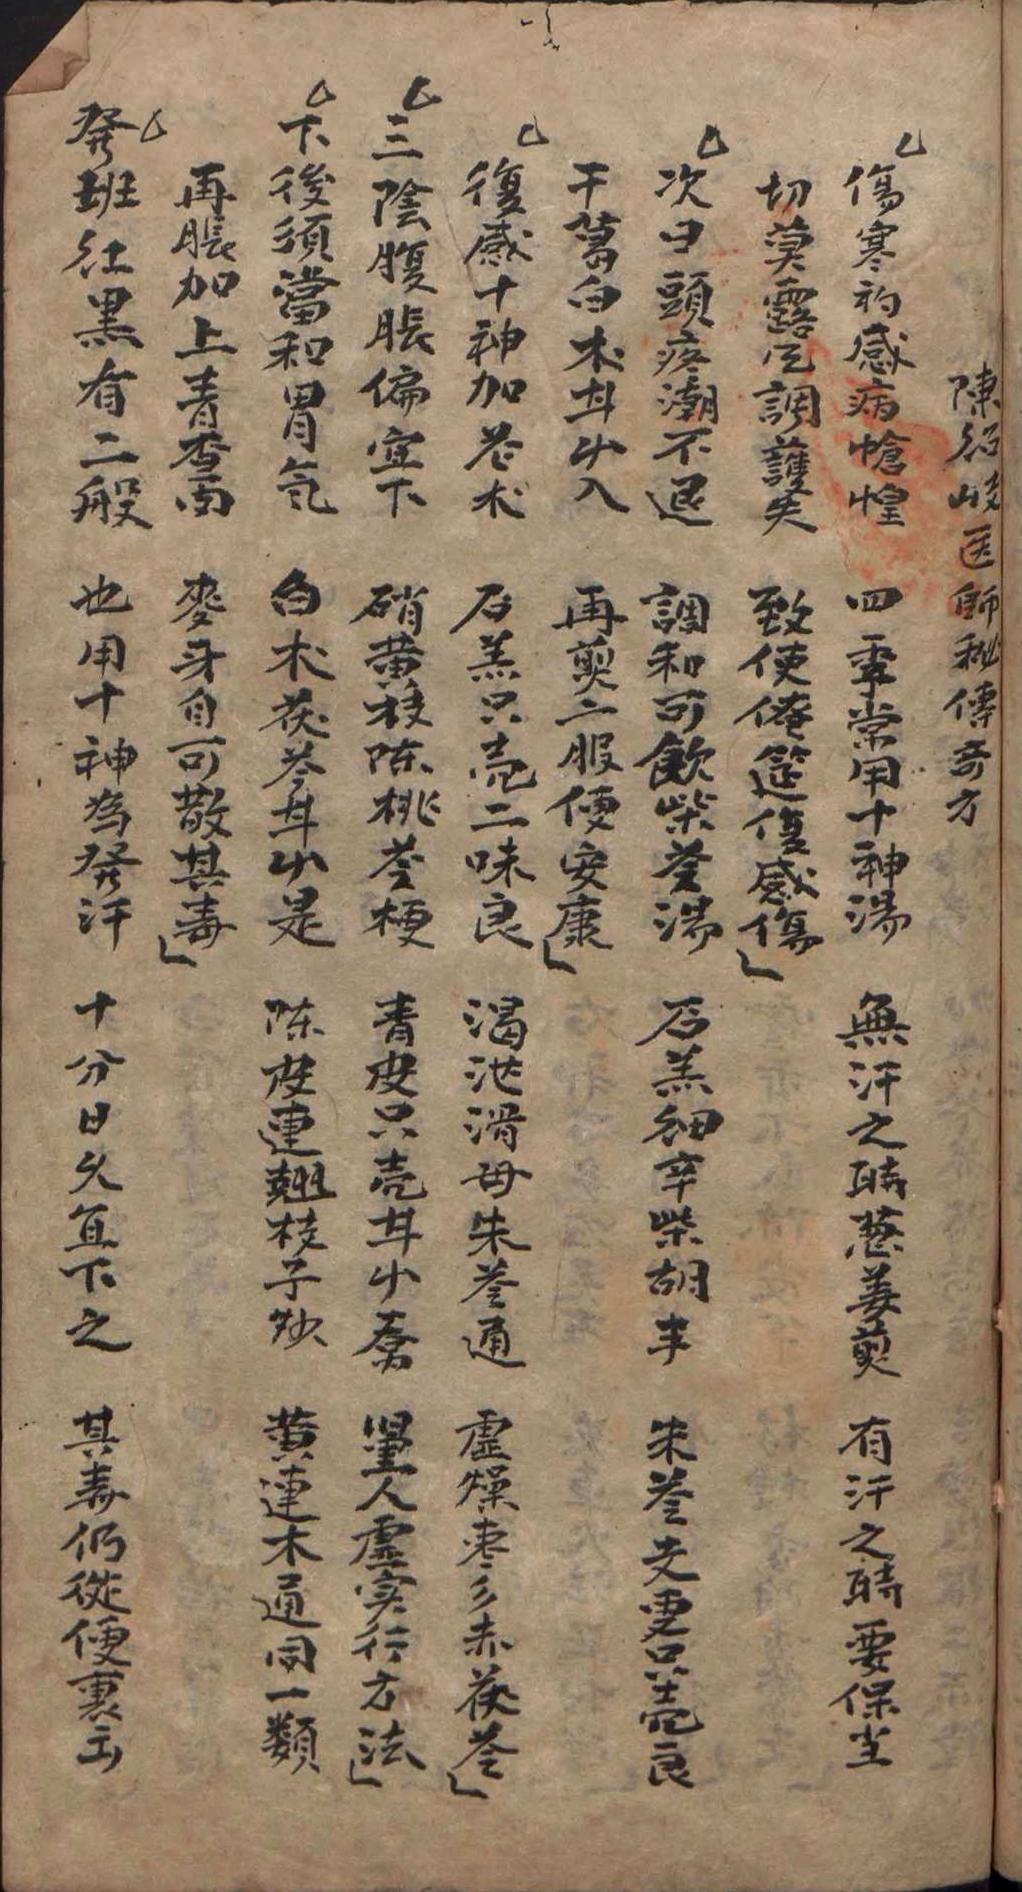 陳紹岐医師秘傳奇方
傷寒初感病愴惶 四季常用十神湯 無汗之時葱姜煎 有汗之時要保全
切莫露風調護失 致使倦筵復感傷
次日頭疼潮不退 調和可飲柴苓湯 石羔細辛柴胡半 朱苓支更只壳良
干葛白术甘草入 再煎二服便安康
復感十神加苍术 石羔只壳二味良 渴泄滑母朱苓通 虛燥枣 赤茯苓
三陰腹脹偏宜下 硝黄枝陈桃苓梗 青皮只壳甘草 量人虛实行方法
下後須當和胃氣 白术茯苓甘草是 陈皮連翹枝子炒 黄連木通同一類
再脹加上青香附 麥牙自可散其毒
發班红黑有二般 也用十神為發汗 十分日久宜下之 其毒仍從便裏出